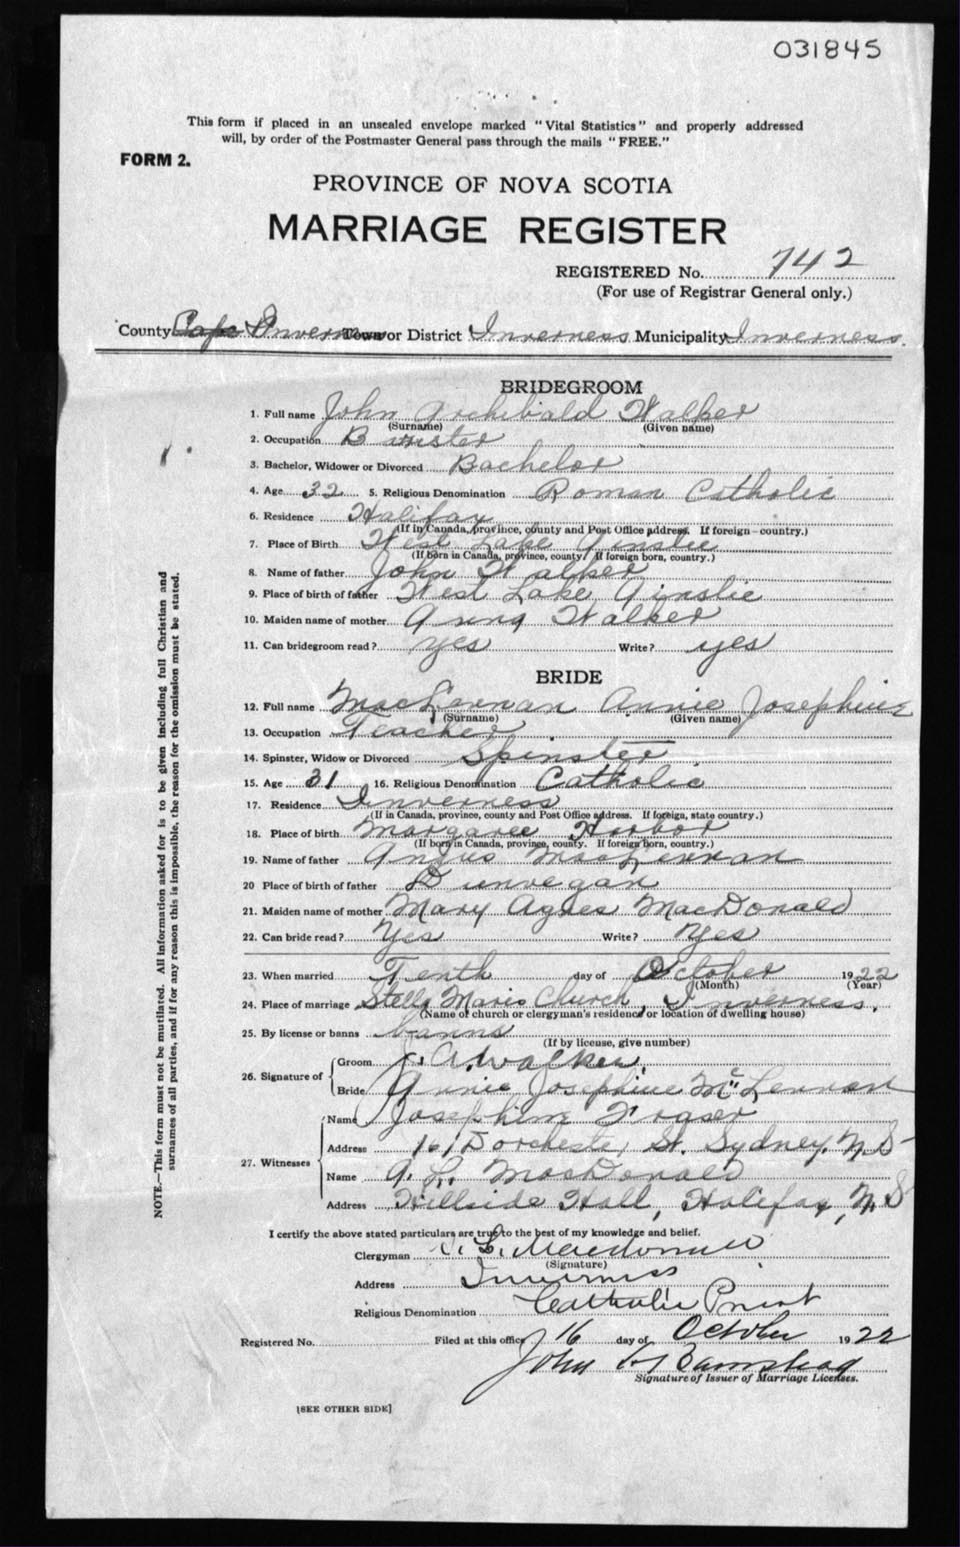 031845
This form if placed in an unsealed envelope marked "Vital Statistics" and properly addressed
will, by order of the Postmaster General pass through the mails "FREE."
FORM 2.
PROVINCE OF NOVA SCOTIA
MARRIAGE REGISTER
REGISTERED No. 742
(For use of Registrar General only.)
County Cape Inverness Town or District Inverness Municipality Inverness.
BRIDEGROOM
1. Full name John Archibald Walker
(Surname) (Given name)
2. Occupation Barrister
3. Bachelor, Widower or Divorced Bachelor
4. Age 32 5. Religious Denomination Roman Catholic
6. Residence Halifax
(If in Canada, province, county and Post Office address. If foreign—country.)
7. Place of Birth West Lake Ainslie
(If born in Canada, province, county. If foreign born, country.)
8. Name of father John Walker
9. Place of birth of father West Lake Ainslie
10. Maiden name of mother Walker
11. Can bridegroom read? yes Write? yes
BRIDE
12. Full name MacLennan Annie Josephine
(Surname) (Given name)
13. Occupation Teacher
14. Spinster, Widow or Divorced Spinster
15. Age 31 16. Religious Denomination Catholic
17. Residence Inverness
(If in Canada, province, county and Post Office address. If foreign, state country.)
18. Place of birth Margaree Harbor
(If born in Canada, province, county. If foreign born, country.)
19. Name of father Angus MacLennan
20 Place of birth of father Dunvegan
21. Maiden name of mother Mary Agnes MacDonald
22. Can bride read? Yes Write? Yes
23. When married Tenth day of October 1922
(Month) (Year)
24. Place of marriage Stella Maris Church, Inverness.
(Name of church or clergyman's residence or location of dwelling house)
25. By license or banns banns
(If by license, give number)
26. Signature of Groom J. A. Walker.
Bride Annie Josephine McLennan
27. Witnesses Name Josephine Fraser
Address 161 Dorchester St. Sydney. N S
Name A. L. MacDonald
Address Hillside Hall, Halifax, N. S
I certify the above stated particulars are true to the best of my knowledge and belief.
Clergyman
(Signature)
Address Inverness
Religious Denomination Catholic Priest
Registered No. Filed at this office 16 day of October 1922
John
Signature of Issuer of Marriage Licenses.
[SEE OTHER SIDE]
NOTE.—This form must not be mutilated. All information asked for is to be given including full Christian and
surnames of all parties, and if for any reason this is impossible, the reason for the omission must be stated.